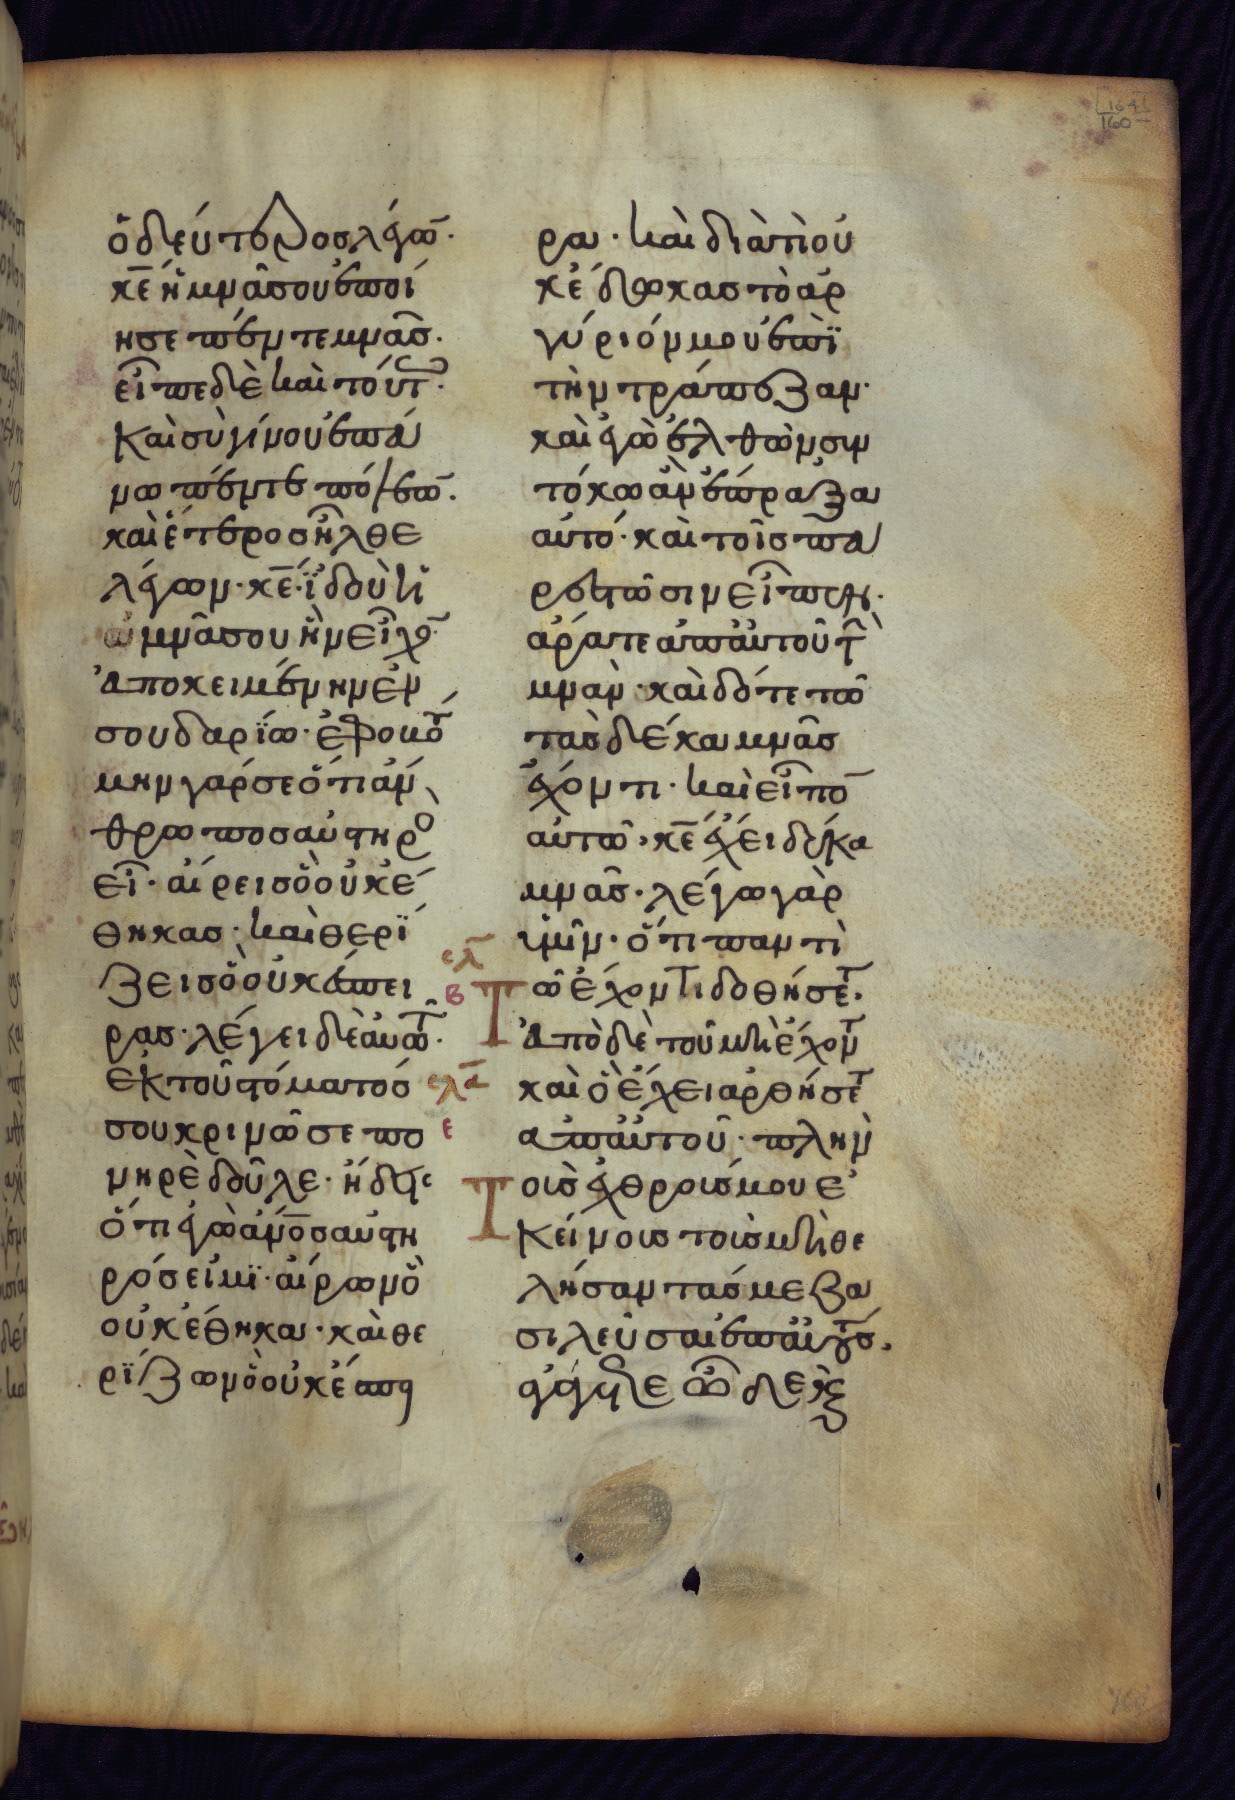 [164]
160
ὁ δεύτερος λέγω̅·
κ̅ε̅ ἡ μνᾶ σου ἐποί
ησε πέντε μνᾶς·
εἶπε δὲ καὶ τούτ·
Καὶ σὺ γίνου ἐπά
νω πέντε πόλεω̅·
καὶ ἕτερος ἦλθε
λέγων· κ̅ε̅· ἰ̈δοὺ ἡ
μνᾶ σου ἣν εἶχο̅
ἀποκειμένην ἐν
σουδαρίω· ἐφοβού
μην γάρ σε ὅτι ἄν
θρωπος αὐστηρὸ
εἶ· αἴρεις ὃ οὐκ ἔ
θηκας· καὶ θερί
ζεις ὃ οὐκ ἔσπει
ρας· λέγει δὲ αὐτω·
ἐκ τοῦ στόματός
σου κρινῶ σε πο
νηρὲ δοῦλε· ἤδεις
ὅτι ἐγὼ ἄν̅ο̅ς αὐστη
ρός εἰμϊ· αἴρων ὃ
οὐκ ἔθηκα· καὶ θε
ρίζων ὃ οὐκ ἔσπει
ρα· καὶ διὰ τί οὐ
κ ἔδωκας τὸ ἀρ
γύριόν μου ἐπὶ̈
τὴν τράπεζαν·
καὶ ἐγὼ ἐλθὼν σὺν
τόκω ἂν ἔπραξα
αὐτό· καὶ τοῖς πα
ρεστῶσιν εἶπεν·
ἄρατε ἀπ αὐτοῦ τὴ
μνᾶν· καὶ δότε τῶ
τὰς δέκα μνᾶς
ἔχοντι· καὶ εἶπο̅
αὐτῶ· κ̅ε̅ ἔχει δέκα
μνᾶς· λέγω γὰρ
ὑμῖν· ὅτι παντὶ
τῶ ἔχοντι δοθήσετ·
ἀπὸ δὲ τοῦ μὴ ἔχοντ
καὶ ὃ ἔχει ἀρθήσετ
ἀπ αὐτοῦ· πλὴν
τοὺς ἐχθρούς μου ἐ
κείνους τοὺς μὴ θε
λήσαντάς με βα
σιλεῦσαι ἐπ αὐτούς·
ἀγάγετε ὧδε κ